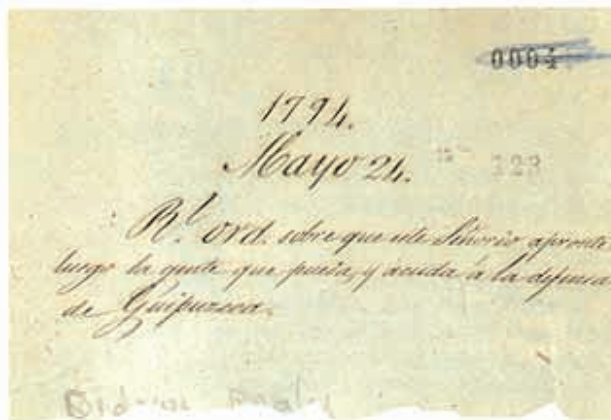 0004
1794.
Mayo 24. 123
Rl. ord. sobre que este Señorio apronte
luego la gente que pueda, y acuda á la defensa
de Guipuzcoa.
Ordenes Reales